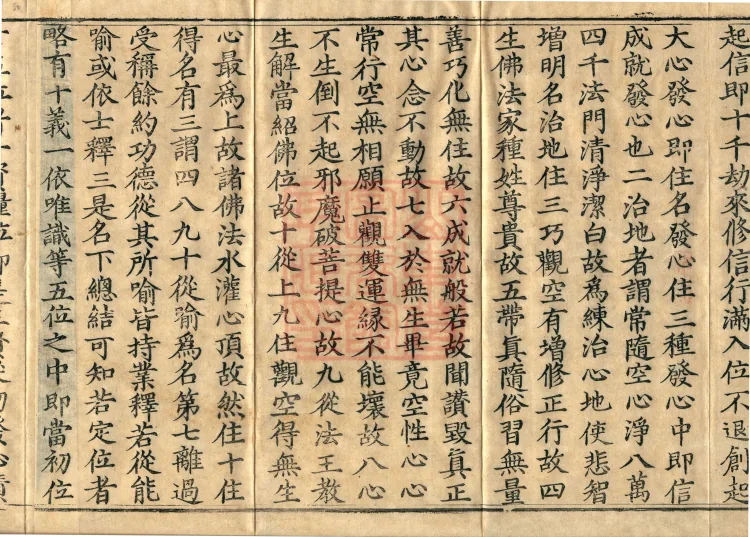 起信即十千劫來修信行滿入位不退創起
大心發心即住名發心住三種發心中即信
成就發心也二治地者謂常隨空心淨八萬
四千法門清淨潔白故爲練治心地使悲智
增明名治地住三巧觀空有增修正行故四
生佛法家種姓尊貴故五帶眞隨俗習無量
善巧化無住故六成就般若故聞讃毀眞正
其心念不動故七入於無生畢竟空性心心
常行空無相願止觀雙運緣不能壞故八心
不生倒不起邪魔破菩提心故九從法王教
生解當紹佛位故十從上九住觀空得無生
心最爲上故諸佛法水灌心頂故然住十住
得名有三謂四八九十從喻爲名第七離過
受稱餘約功德從其所喻皆持業釋若從能
喻或依士釋三是名下總結可知若定位者
略有十義一依唯識等五位之中即當初位